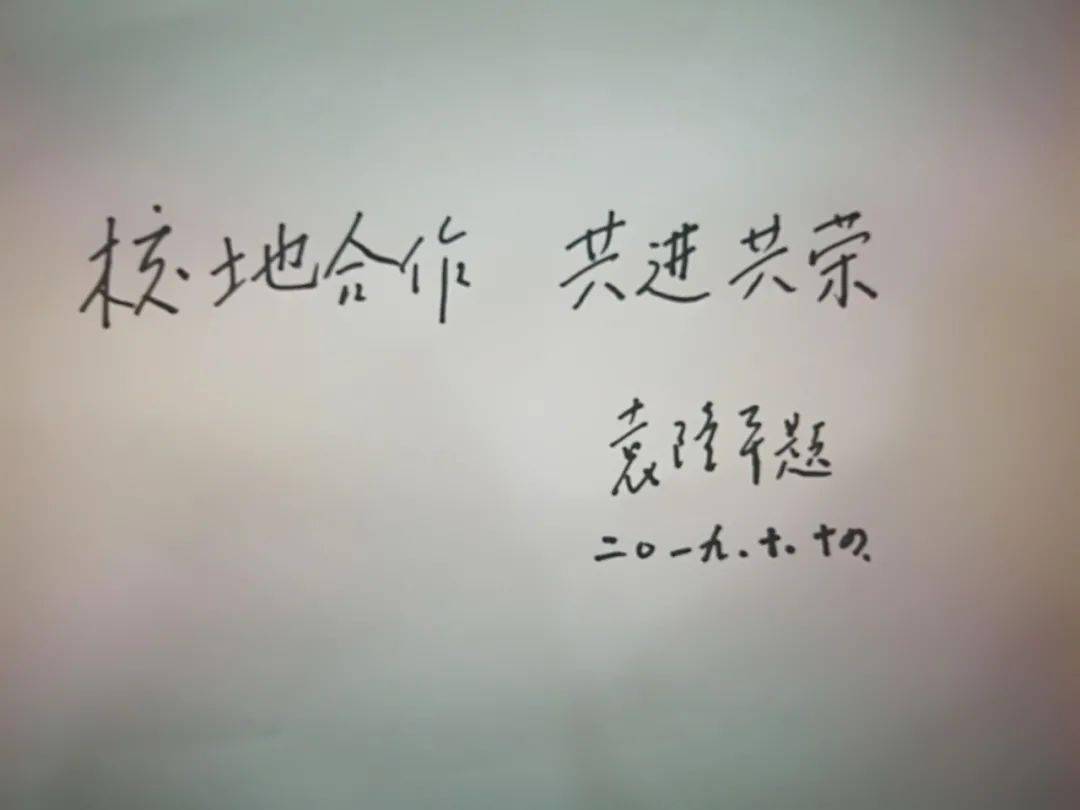 校地合作 共进共荣
袁隆平题
二〇一九.十.十四.